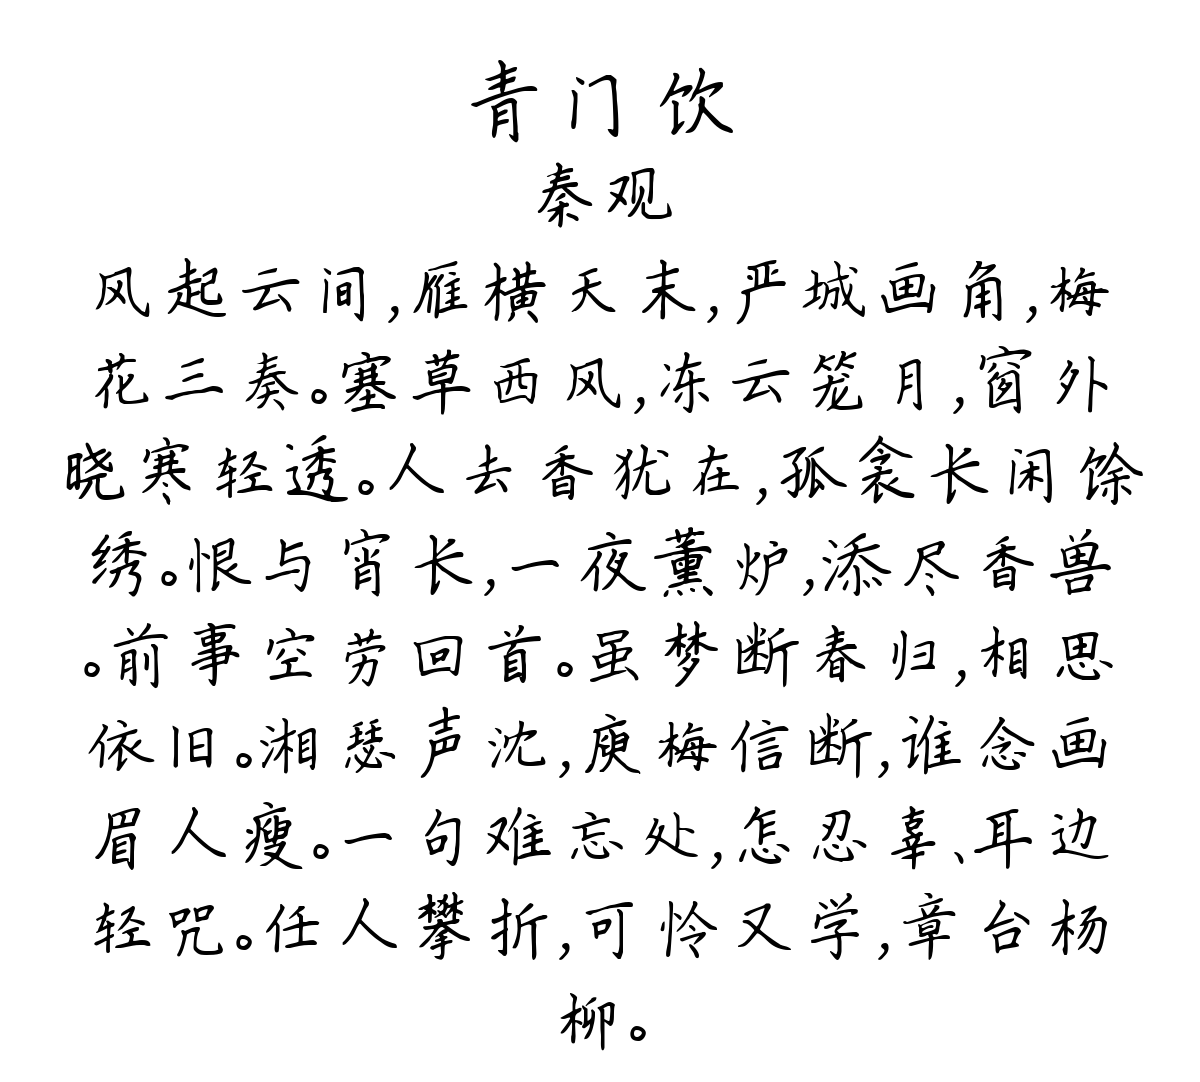 青门饮
秦观
风起云间,雁横天末,严城画角,梅
花三奏。塞草西风,冻云笼月,窗外
晓寒轻透。人去香犹在,孤衾长闲馀
绣。恨与宵长,一夜薰炉,添尽香兽
。前事空劳回首。虽梦断春归,相思
依旧。湘瑟声沈,庾梅信断,谁念画
眉人瘦。一句难忘处,怎忍辜、耳边
轻咒。任人攀折,可怜又学,章台杨
柳。